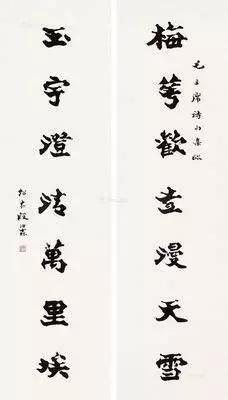 毛主席詩句集联
梅華歡喜漫天雪
玉宇澄清萬里埃